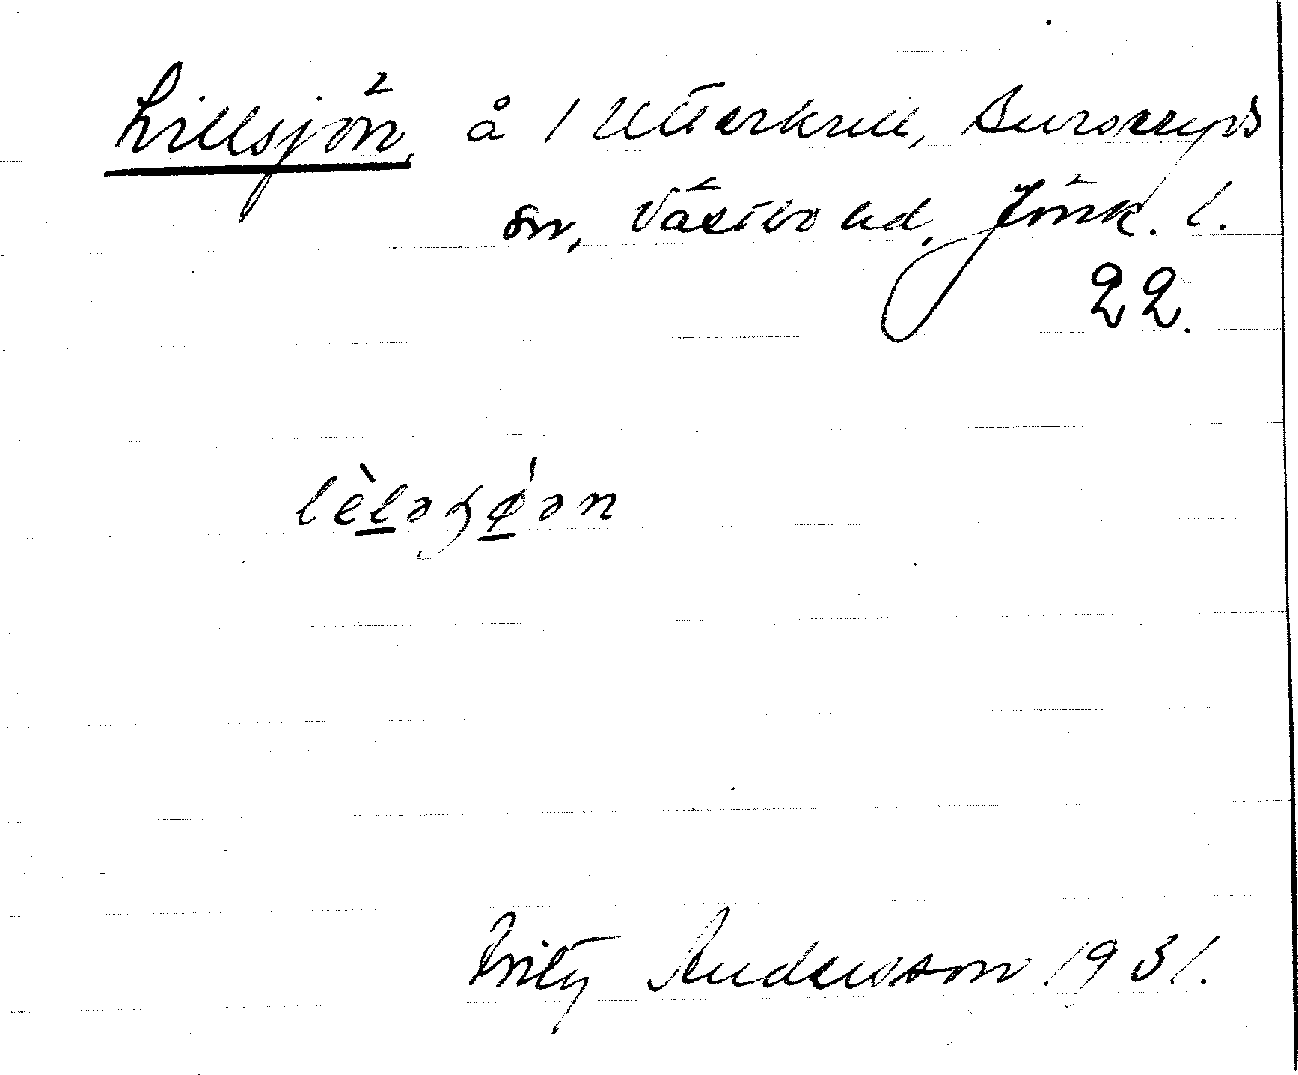 Lillsjön, å 1 Utterhult, Burseryds
sn, Västbo hd, Jönk. l.
22.
lèləȿǿən
Fritz Andersson 1931.